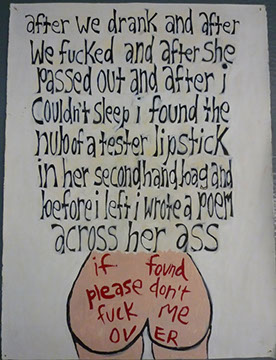 after we drank and after
we fucked and after she
passed out and after i
couldn't sleep i found the
nub of a tester lipstick
in her secondhand bag and
before i left i wrote a poem
across her ass
if found
please don't
fuck me
OVER